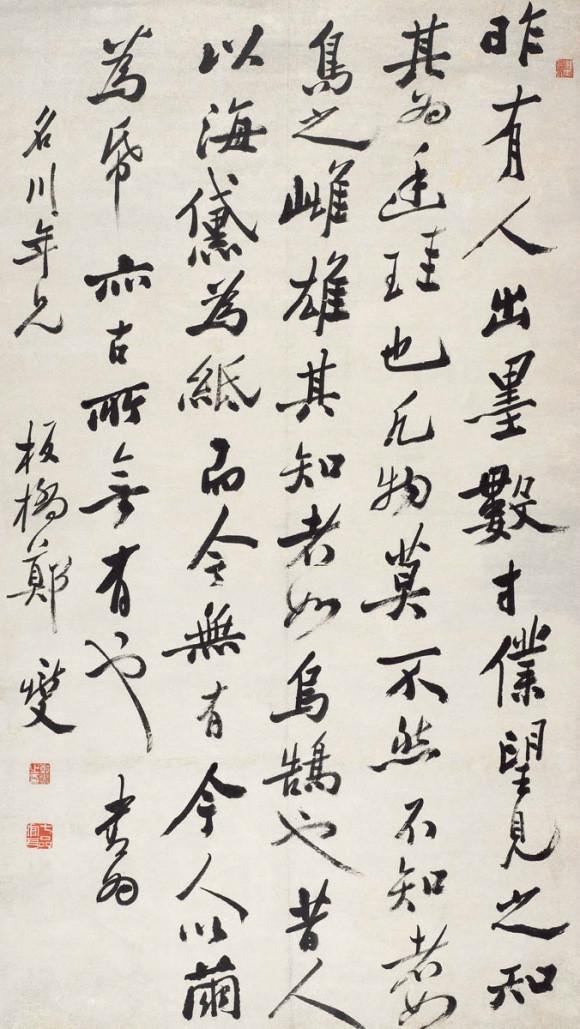 昨有人出墨數寸僕望見之知
其為廷珪也凡物莫不然不知者如
烏之雌雄其知者如烏鵠也昔人
以海黛為紙而今無有今人以繭
為帋亦古所無有也書為
名川年兄 板橋鄭燮